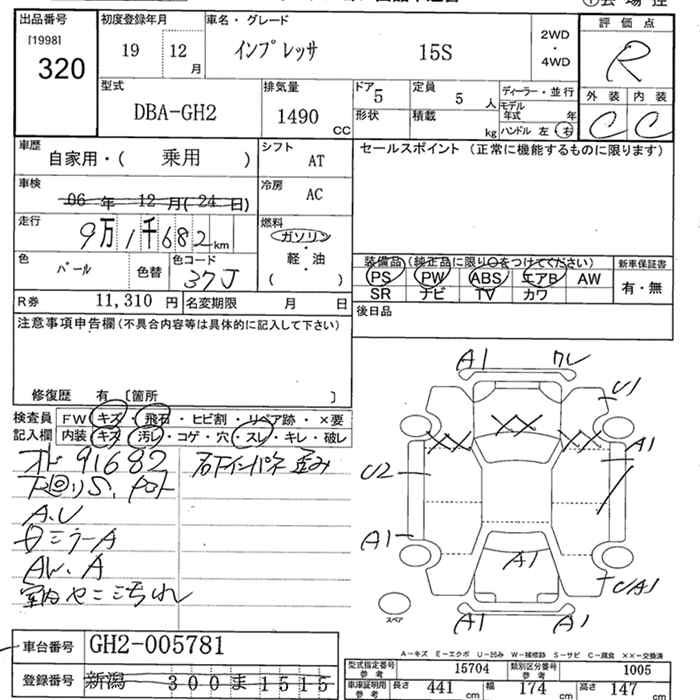 出品番号 初度登録年月 車名・グレード 2WD・4WD 評価点
[1998] 320 19 12月 インプレッサ 15S R
型式 DBA-GH2 排気量 1490 CC ドア 5 定員 5 人 ディーラー・並行
形状 積載 kg モデル年式 年 ハンドル 左 右
外装 内装
C C
車歴 自家用・( 乗用 ) シフト AT セールスポイント (正常に機能するものに限ります)
車検 06 年 12 月(24 日) 冷房 AC
走行 9万1千682 km 燃料 ガソリン・軽・油 ( )
色 パール 色替 色コード 37J
装備品 (純正品に限り○をつけてください) 新車保証書
PS PW ABS エアB AW 有・無
SR ナビ TV カワ
R券 11,310 円 名変期限 月 日
後日品
注意事項申告欄(不具合内容等は具体的に記入して下さい)
修復歴 有 [箇所 ]
検査員 FW キズ・飛石・ヒビ割・リペア跡・×要
記入欄 内装 キズ・汚レ・コゲ・穴・スレ・キレ・破レ
オド 91682
下回りS、
A.U
Bミラー A
AW.A
室内ヤニ汚れ
A1
U1
A1
U2
A1
A1
U/A1
A1 A1
スペア
A-キズ E-エクボ U-凹み W-補修跡 S-サビ C-腐食 ××-交換済
車台番号 GH2-005781
登録番号 新潟 300 ま 1515
型式指定番号 参考 15704 類別区分番号 参考 1005
車庫証明用 参考 長さ 441 cm 幅 174 cm 高さ 147 cm